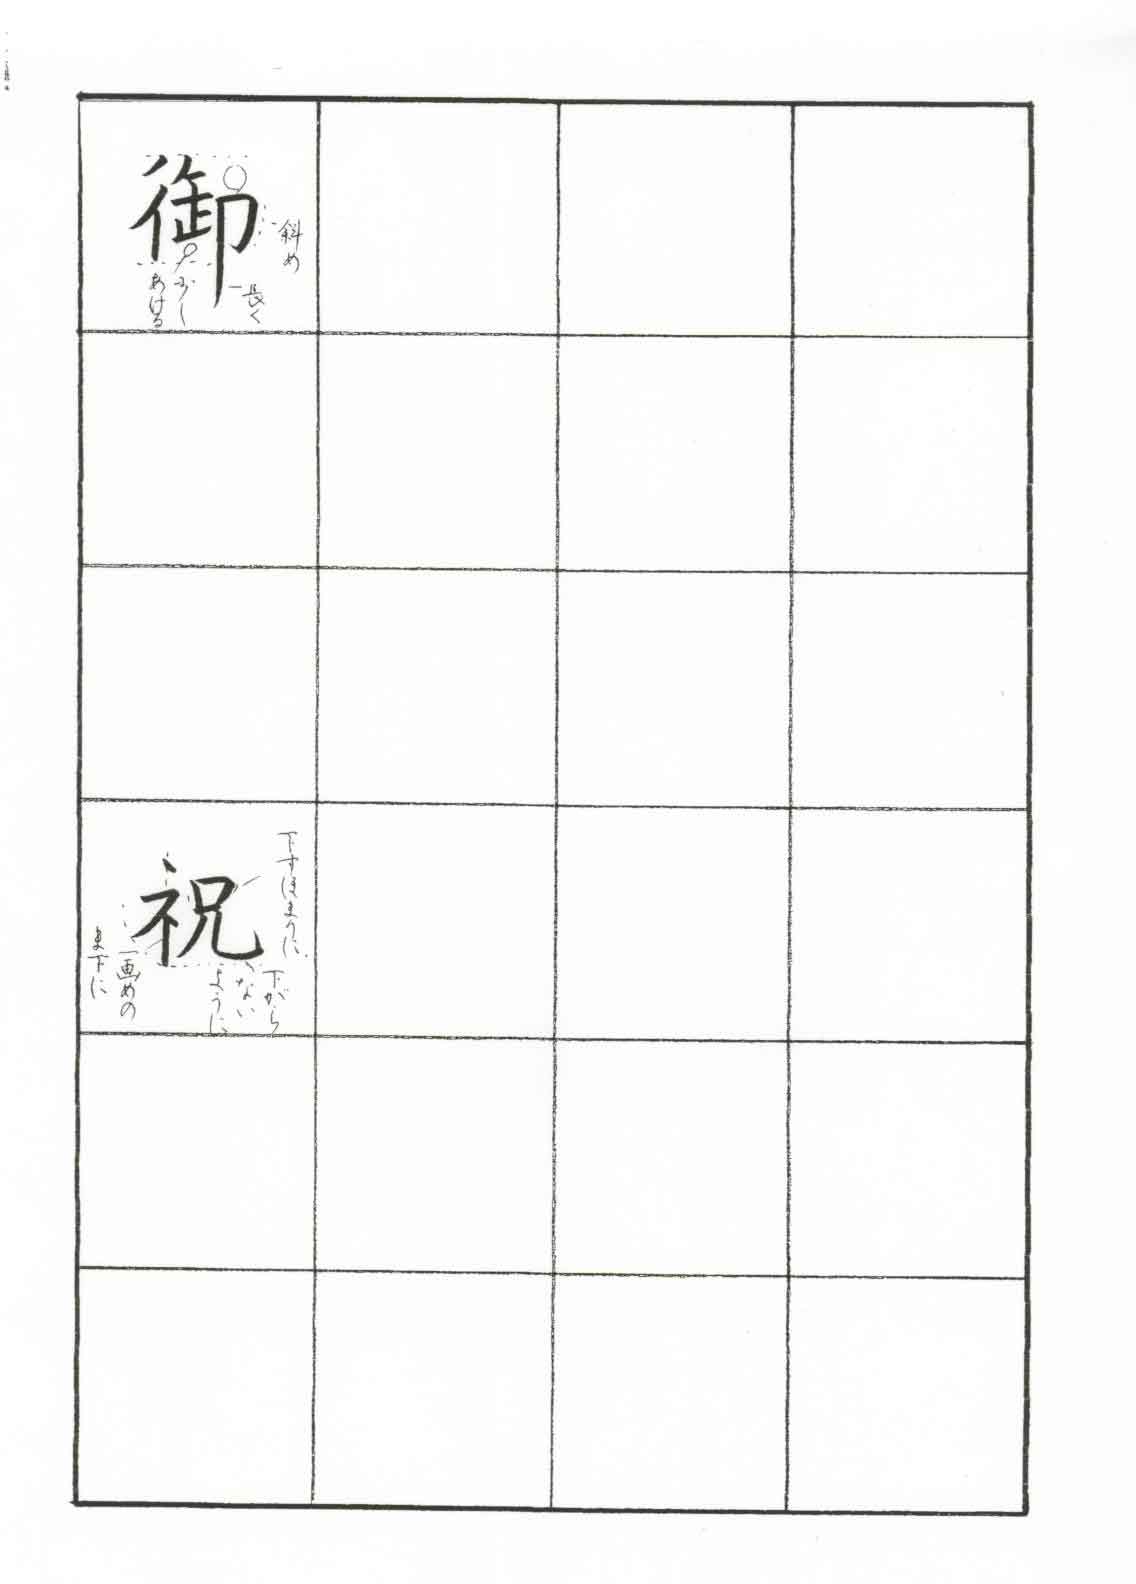 御
斜め
長く
少し
あける
祝
下すぼまりに
下がら
ない
ように
一画めの
ま下に